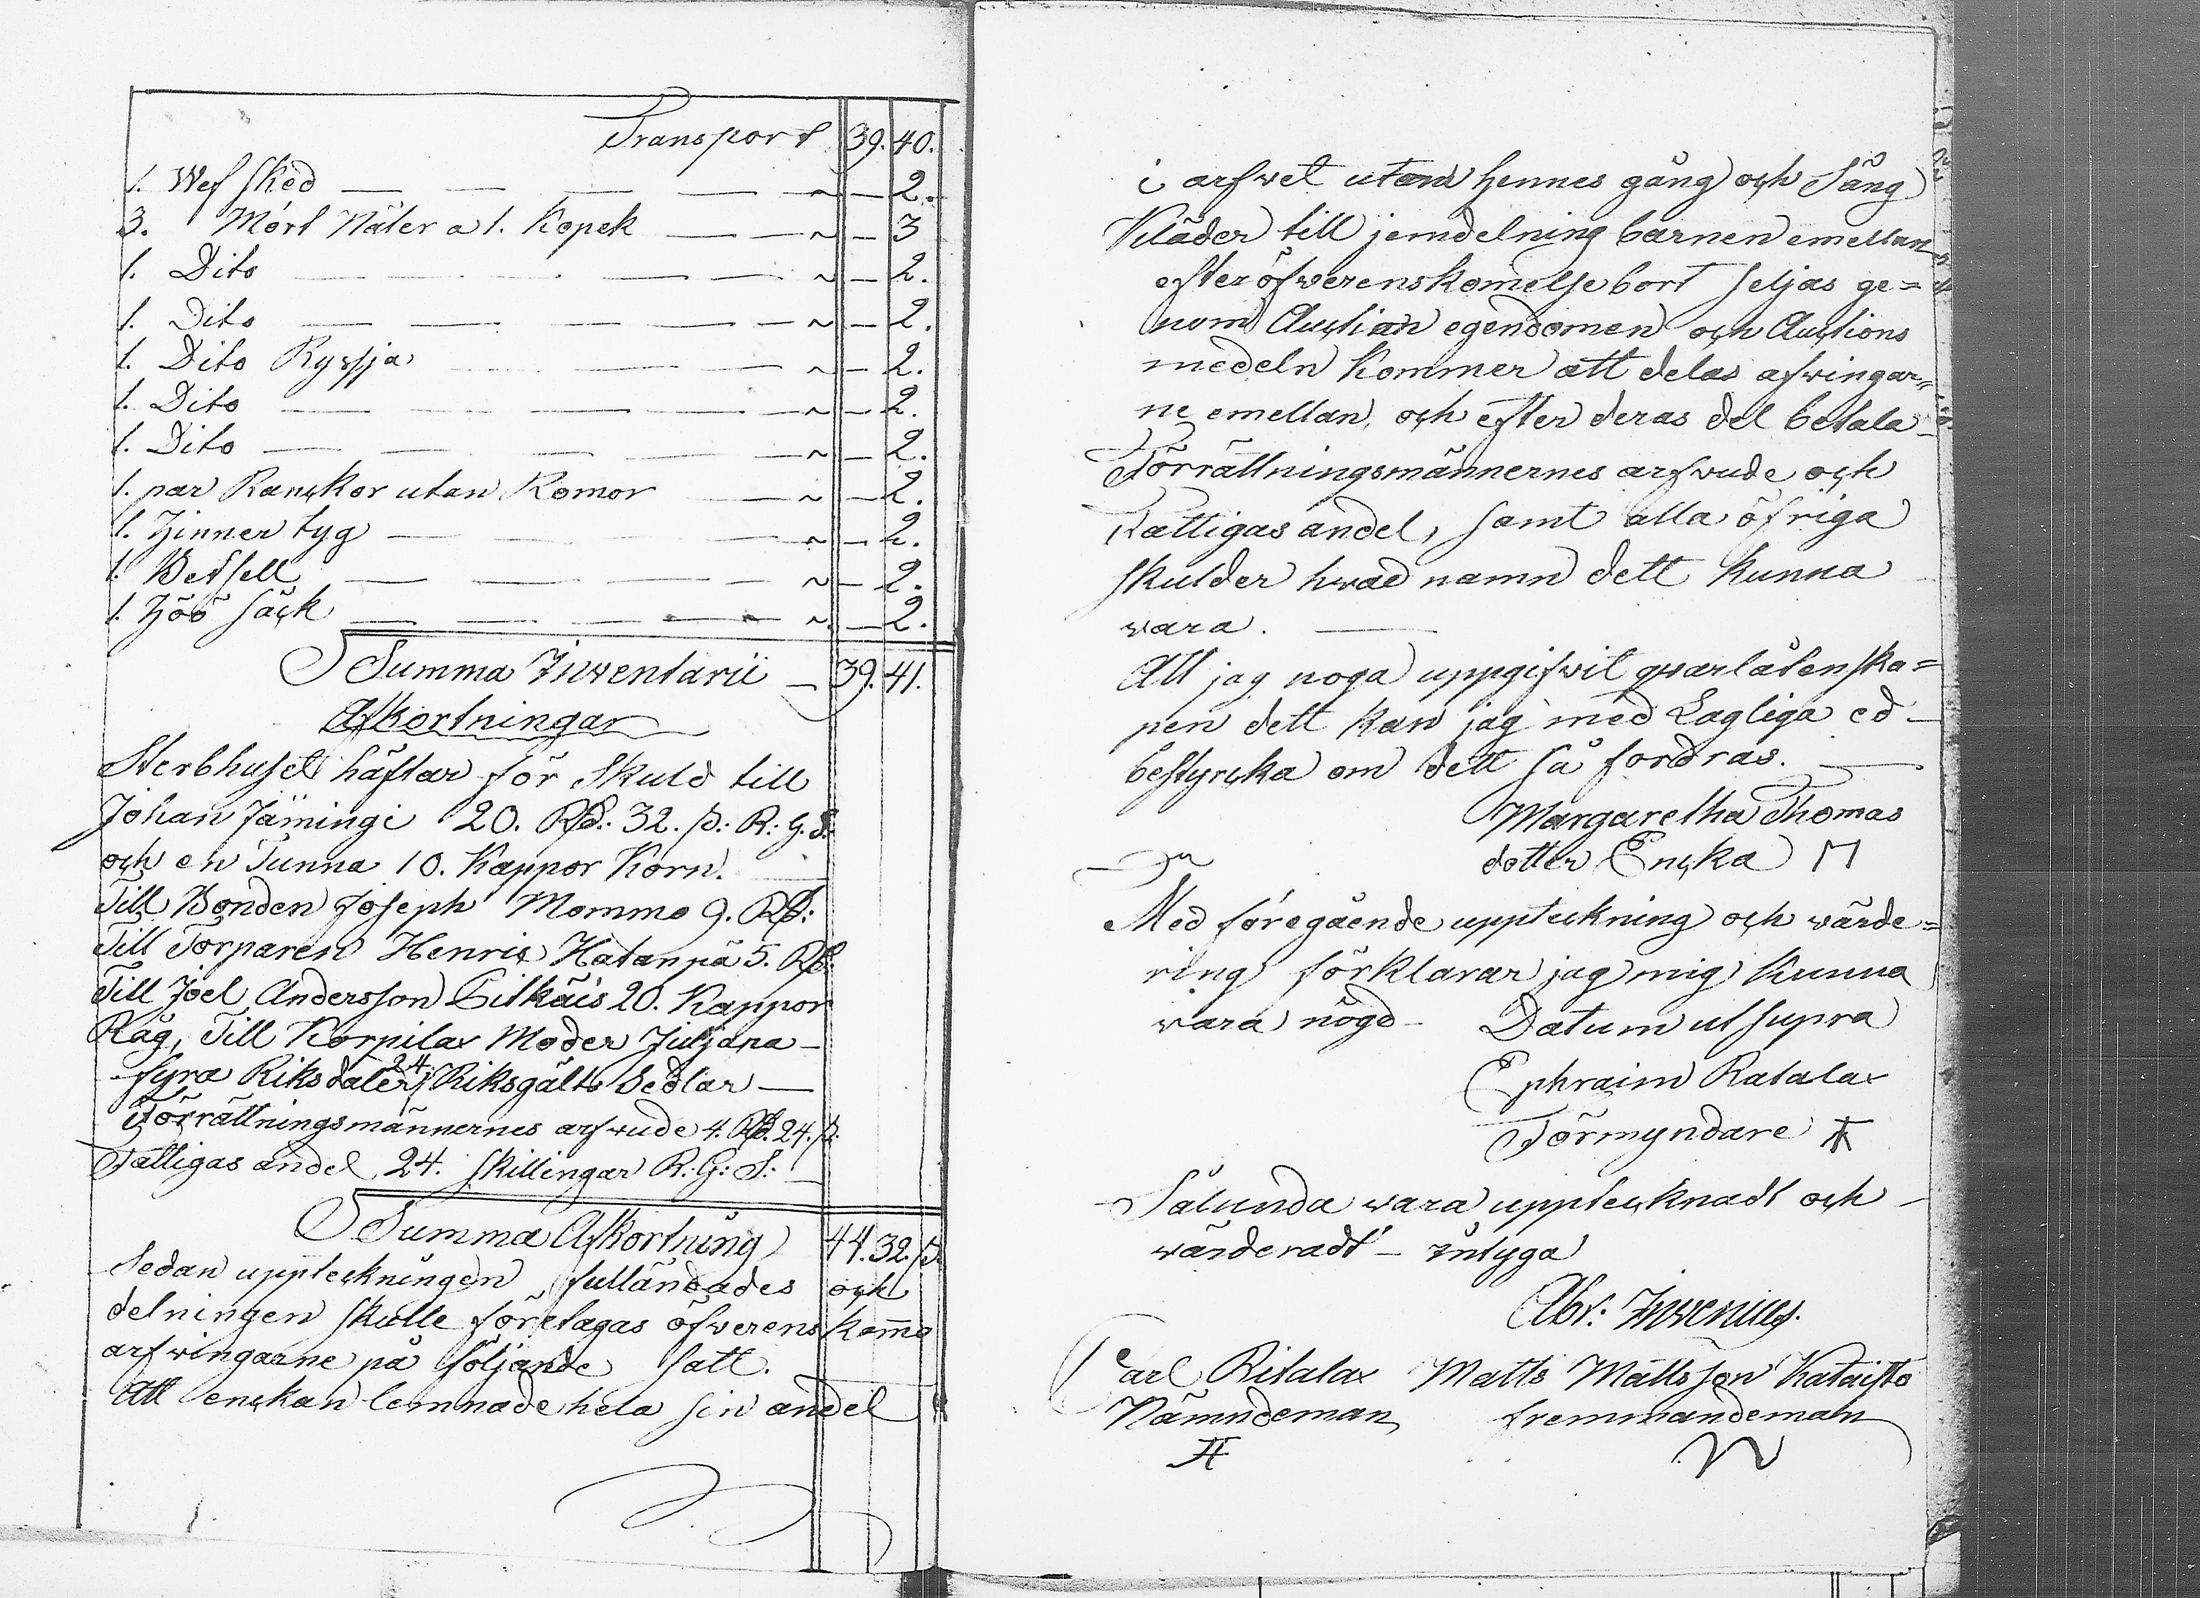 Transport 39. 40.
1. Wef sked — 2.
3. Mört Näter a 1. Kopek — 3
1. Dito — 2.
1. Dito — 2.
1. Dito Ryssja — 2.
1. Dito — 2.
1. Dito — 2.
1. par Ranskor utan Romor — 2.
1. Hinner tyg — 2.
1. Betsell — 2.
1. Höö säck — 2.
Summa Inventarii — 39. 41.
Afkortningar
Sterbhuset häftar för Skuld till
Johan 20. Rd: 32. s: R: G. S:
och en Tunna 10. Kappor Korn.
Till Bonden Joseph Mommo 9. Rd:
Till Torparen Henric Hatanpä 5. Rd:
Till Joel Andersson 20. Kappor
Råg, Till Korpilax Moder Juljana
fyra Riksdaler 24 Riksgälts Sedlar —
Förrättningsmännernes arfwude 4. Rd. 24. s:
Fattigas andel 24. Skillingar R: G: S:
Summa Afkortning 44. 32. s.
Sedan uppteckningen fulländades och
delningen skulle företagas öfwerenskommo
arfwingarne på följande satt.
Att enckan lemnade hela sin andel
i arfwet utom hennes gång och Säng
Kläder till jemdelning barnen emellan
efter öfwerenskomelse bort seljas ge=
nom Auction egendomen och Auctions
medeln kommer att delas arfwingar=
ne emellan, och efter deras del betala
Förrättningsmännernes arfwude och
Fattigas andel, samt alla öfriga
skulder hwad namn dett kunna
wara. —
Att jag noga uppgifwit qwarlåtenska=
pen dett kan jag med Lagliga ed
bestyrcka om dett så fordras. —
Margaretha Thomas
dotter Encka M
Med föregående uppteckning och wärde=
ring förklarar jag mig kunna
wara nögd — Datum ut supra
Ephraim Ratalax
Förmyndare
Sålunda wara upptecknadt och
wärderadt — intyga
Abr: Invenius.
Carl Ritalax Matts Mattsson Kataisto
Nämndeman fremmandeman